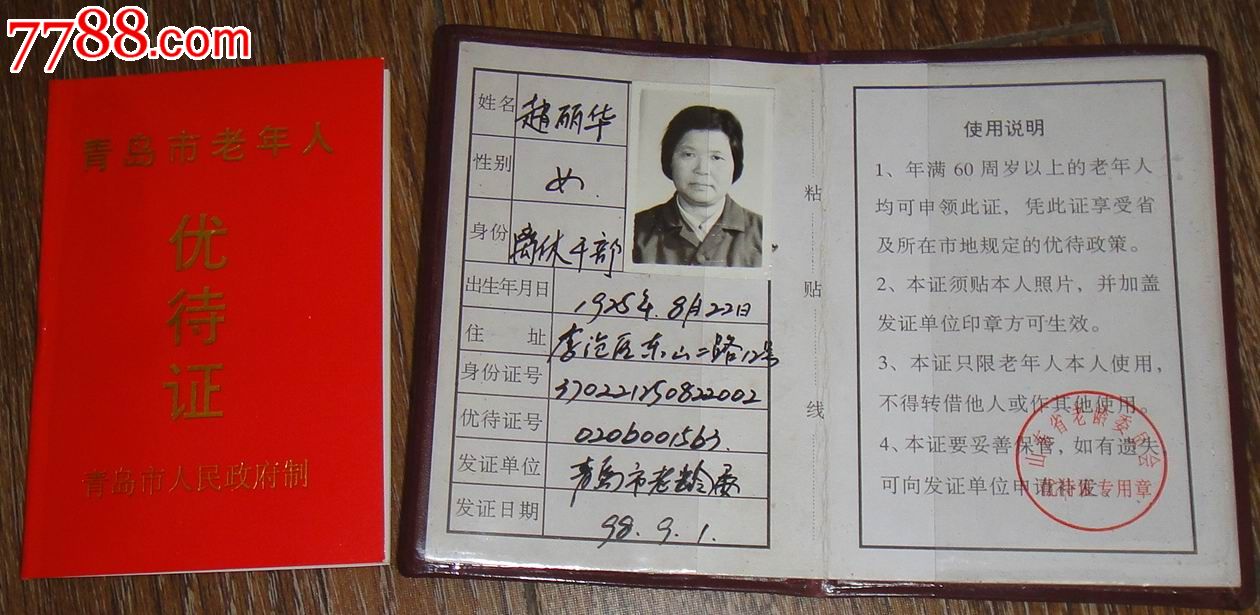 7788.com
青岛市老年人
优
待
证
青岛市人民政府制
姓名 赵丽华
性别 女.
身份 离休干部
出生年月日 1925年8月22日
住址 李沧区东山二路12号
身份证号 370221250822002
优待证号 0206001563.
发证单位 青岛市老龄委
发证日期 98.9.1.
粘
贴
线
使用说明
1、年满60周岁以上的老年人
均可申领此证，凭此证享受省
及所在市地规定的优待政策。
2、本证须贴本人照片，并加盖
发证单位印章方可生效。
3、本证只限老年人本人使用，
不得转借他人或作其他使用。
4、本证要妥善保管，如有遗失
可向发证单位申请补发。
山东省老龄委员会
优待证专用章